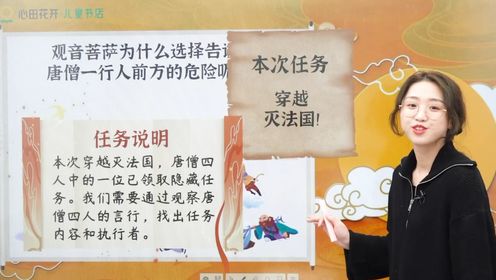 心田花开 儿童书店
观音菩萨为什么选择告
唐僧一行人前方的危险呢
本次任务
穿越
灭法国!
任务说明
本次穿越灭法国，唐僧四
人中的一位已领取隐藏任
务。我们需要通过观察唐
僧四人的言行，找出任务
内容和执行者。